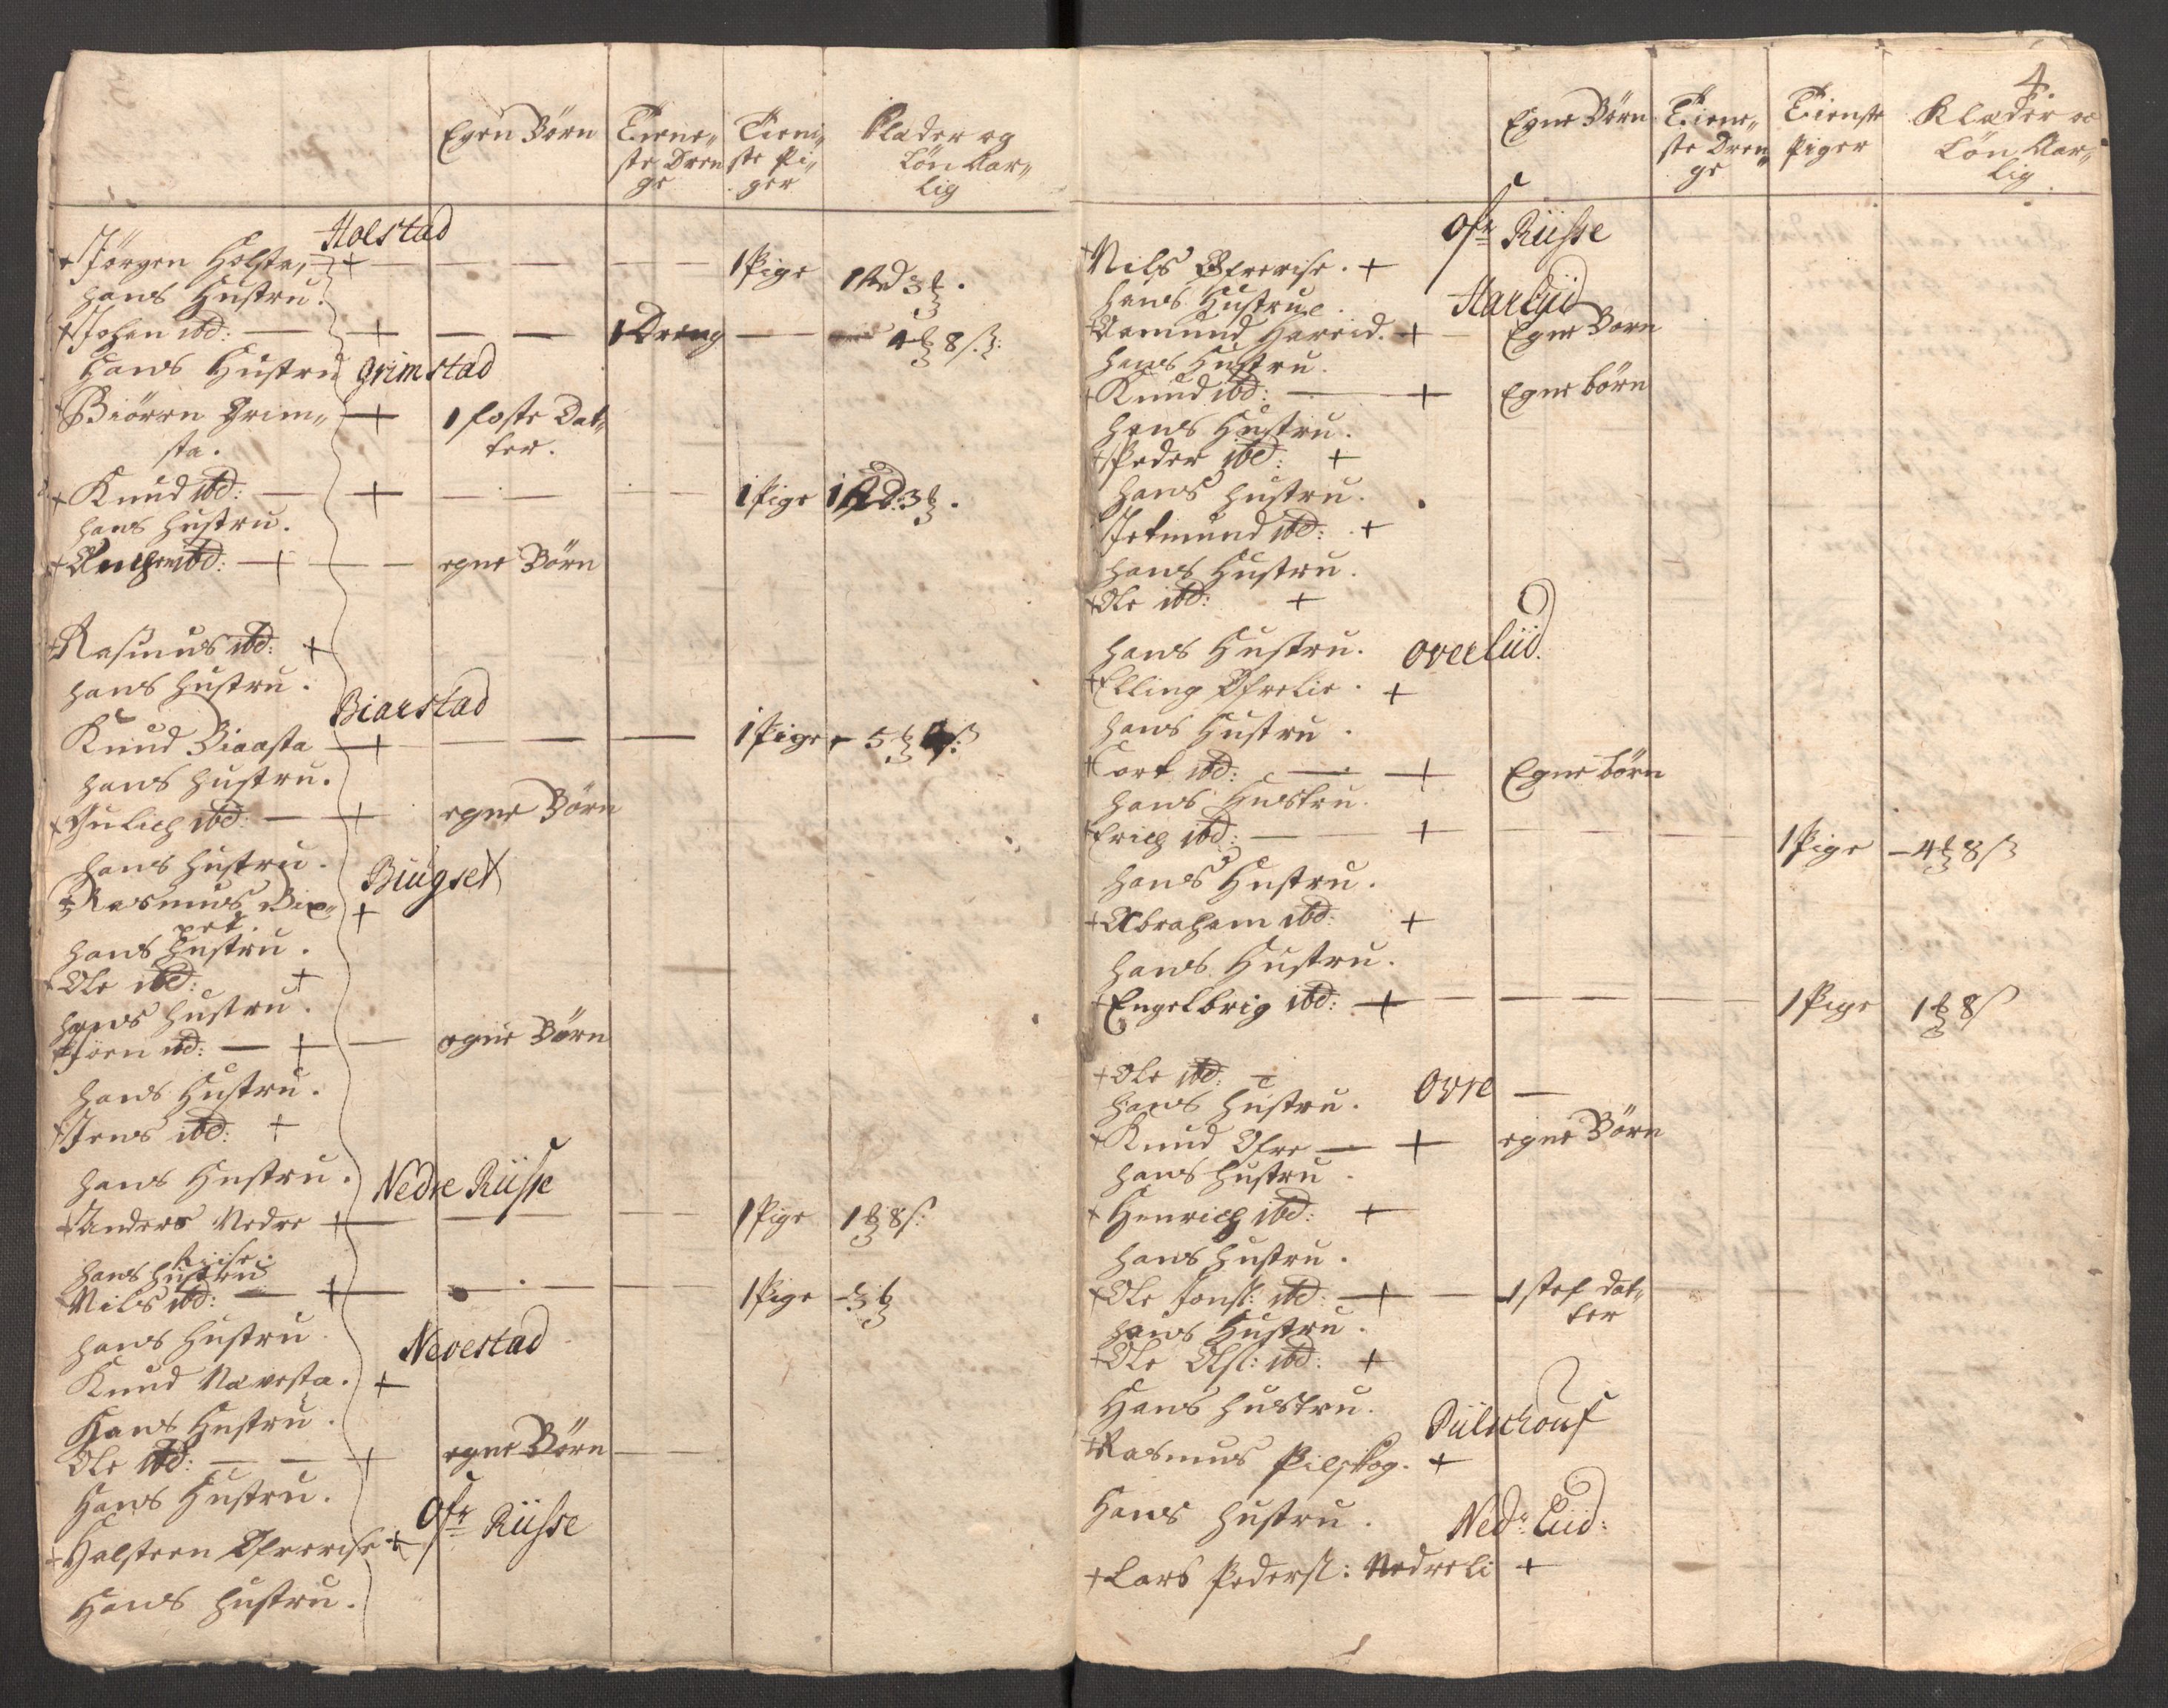 Egen Börn
Tiene„
ste Dren
ge
Tieni„
ste Pi„
ger
Klæder og
Lön Aar„
lig
Holstad
+ Jörgen Holsta, + — — — 1 Pige 1 Rd 3 ℔.
hans Hustru.
+ Johan ibd: — + — — 1 Dreng — 4 ℔ 8 s.
hans Hustru
Grimstad
+ Biören Grim„ + 1 foste Dat„
sta. ter.
+ Knud ibd: — + — — 1 Pige 1 Rd: 3 ℔.
hans hustru.
+ ibd: — + — — egne Börn
+ Rasmus ibd: +
hans hustru.
Biaestad
Knud Biaasta + — — — 1 Pige — 5 ℔
hans hustru.
+ Gulich ibd: — + egne Börn
hans hustru.
Biügset
+ Rasmus Big„ +
set.
hans hustru.
+ Ole ibd: +
hans hustru.
+ Jöen ibd: — + — egne Börn
hans Hustru.
+ Jens ibd: +
hans Hustru.
Nedre Riisse
+ Anders Nedre + — — — 1 Pige 1 ℔ 8 s:
Riise.
hans hustru
Nils ibd: — + — — — 1 Pige - 3 ℔
hans hustru.
Nevestad
Knud Navesta. +
Hans Hustru.
Ole ibd: — — + egne Börn — —
Hans Hustru.
Ofr Riisse
+ Halsteen Ofreriise +
Hans hustru.
4.
Egne Börn
Tiene„
ste Dren„
ge
Tienste
Piger
Klæder o
Lön Aar„
lig
Ofr Riisse
+ Nils Ofrerise. +
hans Hustrue.
Hareiid
+ Aamund Hareid. + — Egne Börn
hans Hustru.
+ Knud ibd: — + Egne börn
hans Hustru.
+ Peder ibd: +
hans hustru.
+ Jetmund ibd: +
hans Hustru.
+ Ole ibd: +
hans Hustru.
Overliid.
+ Elling Ofrelie. +
hans Hustru.
+ Cort ibd: — + Egne börn
hans Hustru.
+ Erich ibd: — + — — — 1 Pige — 4 ℔ 8 s
hans Hustru.
+ Abraham ibd: +
hans Hustru.
+ Engelbrig ibd: + — — — 1 Pige 1 ℔ 8 s
+ Ole ibd: +
hans hustru.
Ovre —
+ Knud Ofre — + egne Börn
hans hustru.
+ Henrich ibd: +
hans hustru.
+ Ole Jonsl: ibd: — + — 1 stef dat„
ter
hans Hustru.
+ Ole Olsl: ibd: +
Hans hustru.
Piilschouf
+ Rasmus Pilskog. +
Hans hustru.
Nedr Liid:
+ Lars Pedersl: Nedreli +